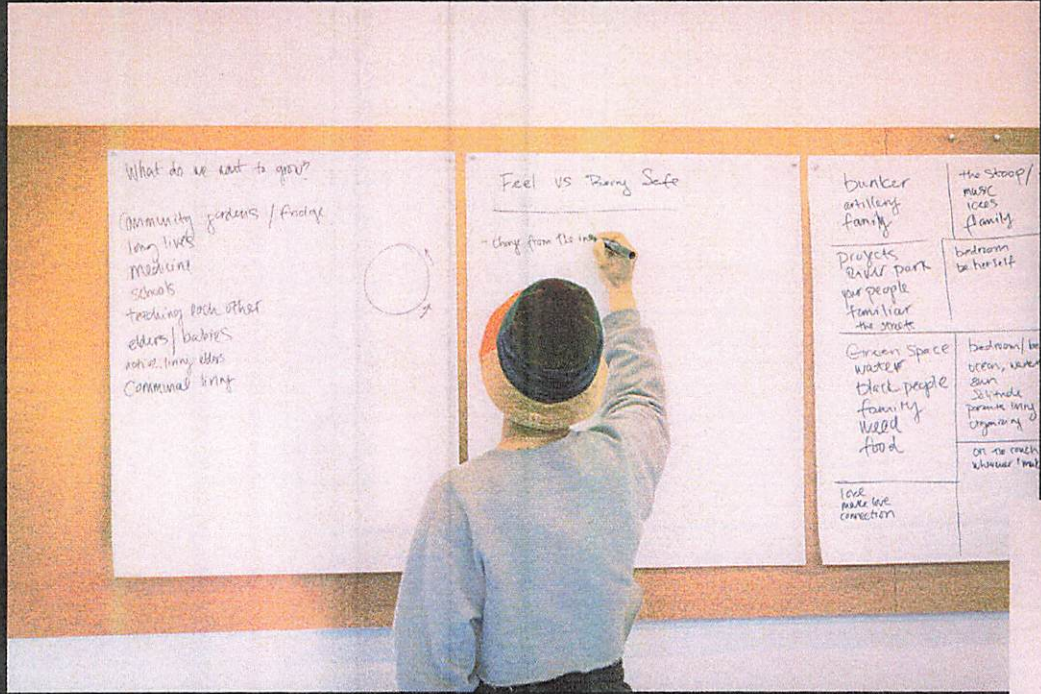 What do we want to grow?
Community gardens / fridge
long lives
medicine
schools
teaching each other
elders / babies
living elders
Communal living
Feel vs Being Safe
- change from the
bunker
artillery
family
the stoop /
music
ices
family
projects
River park
our people
familiar
the streets
bedroom
be herself
Green Space
water
black people
family
weed
food
bedroom /
ocean,
sun
Solitude
living
organizing
love
make love
connection
on the couch
wherever I